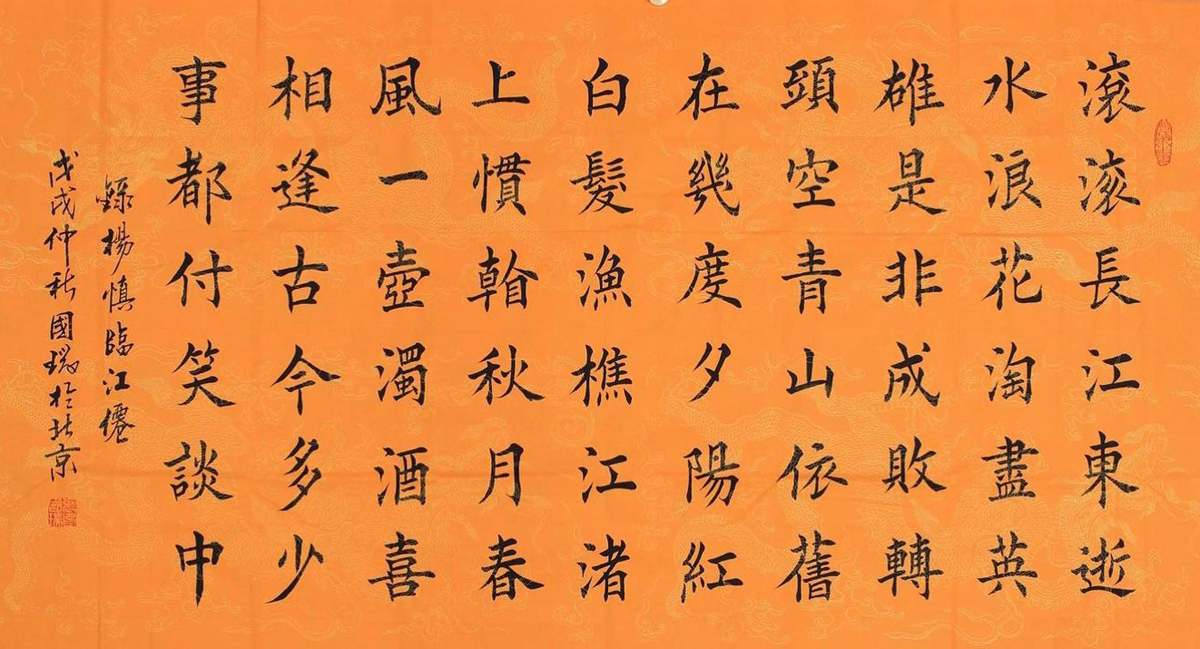 滚滚長江東逝
水浪花淘盡英
雄是非成敗轉
頭空青山依舊
在幾度夕陽紅
白髮漁樵江渚
上慣看秋月春
風一壺濁酒喜
相逢古今多少
事都付笑談中
錄楊慎臨江僊
戊戌仲秋國於北京